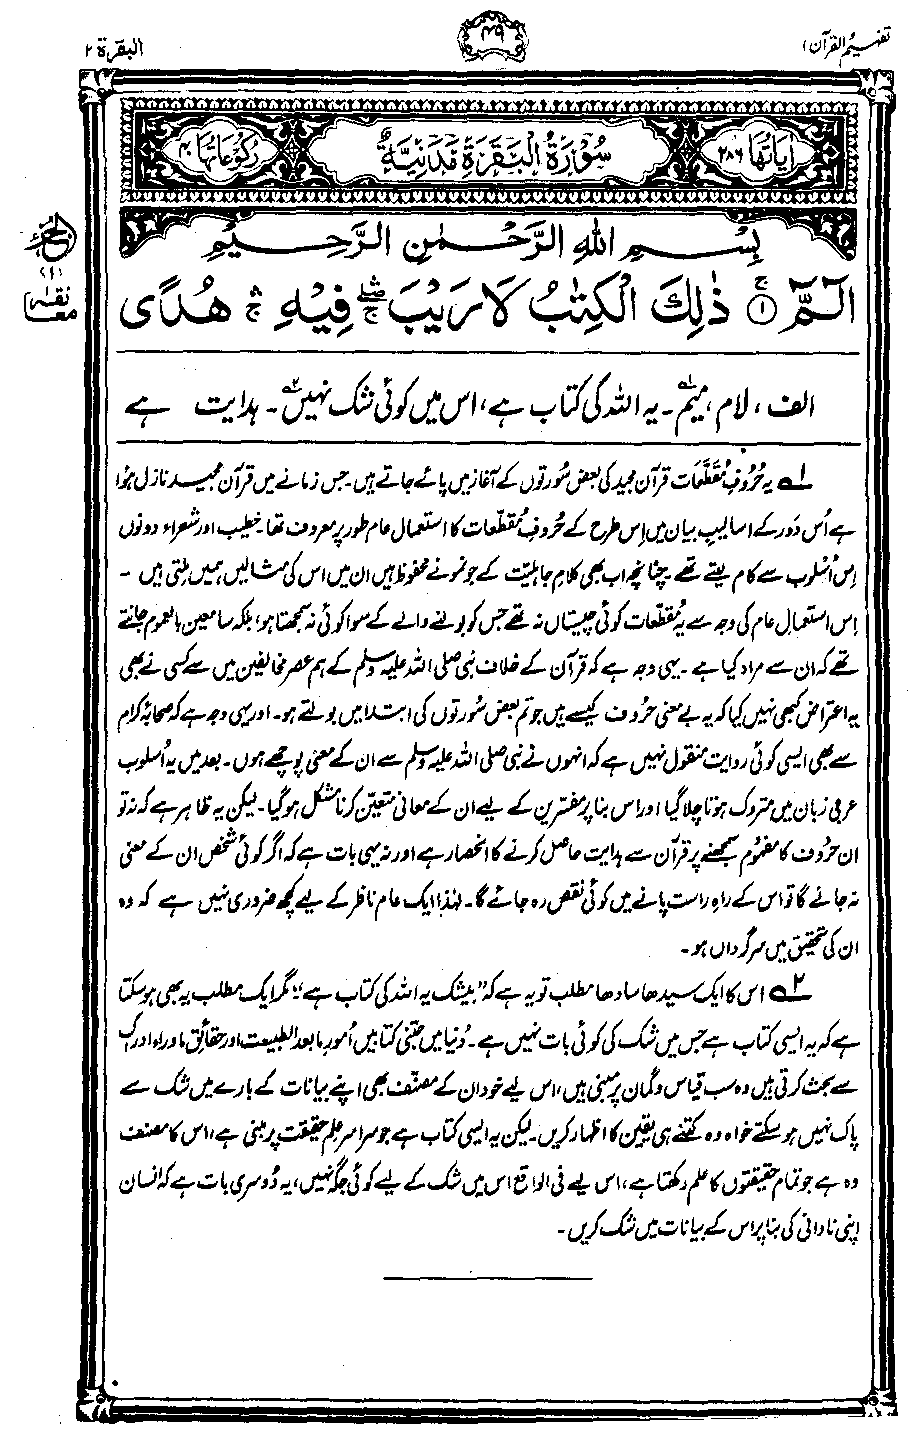 تفہیم القرآن ۱
۴۹
البقرۃ ۲
اٰیَاتُهَا ۲۸۶
سُوْرَةُ الْبَقَرَةِ مَدَنِيَّةٌ
رُكُوْعَاتُهَا ۴۰
بِسْمِ اللّٰهِ الرَّحْمٰنِ الرَّحِيْمِ
الٓمّٓ ۚ﴿۱﴾ ذٰلِكَ الْكِتٰبُ لَا رَيْبَ ۛ فِيْهِ ۛ هُدًى
الجزء
(۱)
معانقہ
الف، لام، میم۱؎۔ یہ اللہ کی کتاب ہے، اس میں کوئی شک نہیں۲؎۔ ہدایت ہے
۱؎ یہ حُرُوفِ مُقَطَّعَات قرآن مجید کی بعض سُورتوں کے آغاز میں پائے جاتے ہیں۔ جس زمانے میں قرآن مجید نازل ہُوا
ہے اُس دَور کے اسالیبِ بیان میں اِس طرح کے حُروفِ مُقطّعات کا استعمال عام طور پر معروف تھا۔ خطیب اور شعراء دونوں
اِس اُسْلوب سے کام لیتے تھے۔ چنانچہ اب بھی کلامِ جاہلیّت کے جو نمونے محفوظ ہیں ان میں اس کی مثالیں ہمیں ملتی ہیں۔
اِس استعمالِ عام کی وجہ سے یہ مُقطّعات کوئی چیستاں نہ تھے جس کو بولنے والے کے سوا کوئی نہ سمجھتا ہو، بلکہ سامعین بالعموم جانتے
تھے کہ ان سے مراد کیا ہے۔ یہی وجہ ہے کہ قرآن کے خلاف نبی صلی اللہ علیہ وسلم کے ہم عصر مخالفین میں سے کسی نے بھی
یہ اعتراض کبھی نہیں کیا کہ یہ بے معنی حُروف کیسے ہیں جو تم بعض سُورتوں کی ابتدا میں بولتے ہو۔ اور یہی وجہ ہے کہ صحابۂ کرام
سے بھی ایسی کوئی روایت منقول نہیں ہے کہ انہوں نے نبی صلی اللہ علیہ وسلم سے ان کے معنی پوچھے ہوں۔ بعد میں یہ اُسلوب
عربی زبان میں متروک ہوتا چلا گیا اور اس بنا پر مفسّرین کے لیے ان کے معانی متعیّن کرنا مشکل ہو گیا۔ لیکن یہ ظاہر ہے کہ نہ تو
ان حُروف کا مفہُوم سمجھنے پر قرآن سے ہدایت حاصل کرنے کا انحصار ہے اور نہ یہی بات ہے کہ اگر کوئی شخص ان کے معنی
نہ جانے گا تو اس کے راہِ راست پانے میں کوئی نقص رہ جائے گا۔ لہٰذا ایک عام ناظر کے لیے کچھ ضروری نہیں ہے کہ وہ
ان کی تحقیق میں سرگرداں ہو۔
۲؎ اس کا ایک سیدھا سادھا مطلب تو یہ ہے کہ "بیشک یہ اللہ کی کتاب ہے"، مگر ایک مطلب یہ بھی ہو سکتا
ہے کہ یہ ایسی کتاب ہے جس میں شک کی کوئی بات نہیں ہے۔ دُنیا میں جتنی کتابیں اُمورِ مابعد الطبیعت اور حقائقِ ماوراءِ ادراک
سے بحث کرتی ہیں وہ سب قیاس و گمان پر مبنی ہیں، اس لیے خود ان کے مصنّف بھی اپنے بیانات کے بارے میں شک سے
پاک نہیں ہو سکتے خواہ وہ کتنے ہی یقین کا اظہار کریں۔ لیکن یہ ایسی کتاب ہے جو سراسر علمِ حقیقت پر مبنی ہے، اس کا مصنف
وہ ہے جو تمام حقیقتوں کا علم رکھتا ہے، اس لیے فی الواقع اس میں شک کے لیے کوئی جگہ نہیں، یہ دُوسری بات ہے کہ انسان
اپنی نادانی کی بنا پر اس کے بیانات میں شک کریں۔